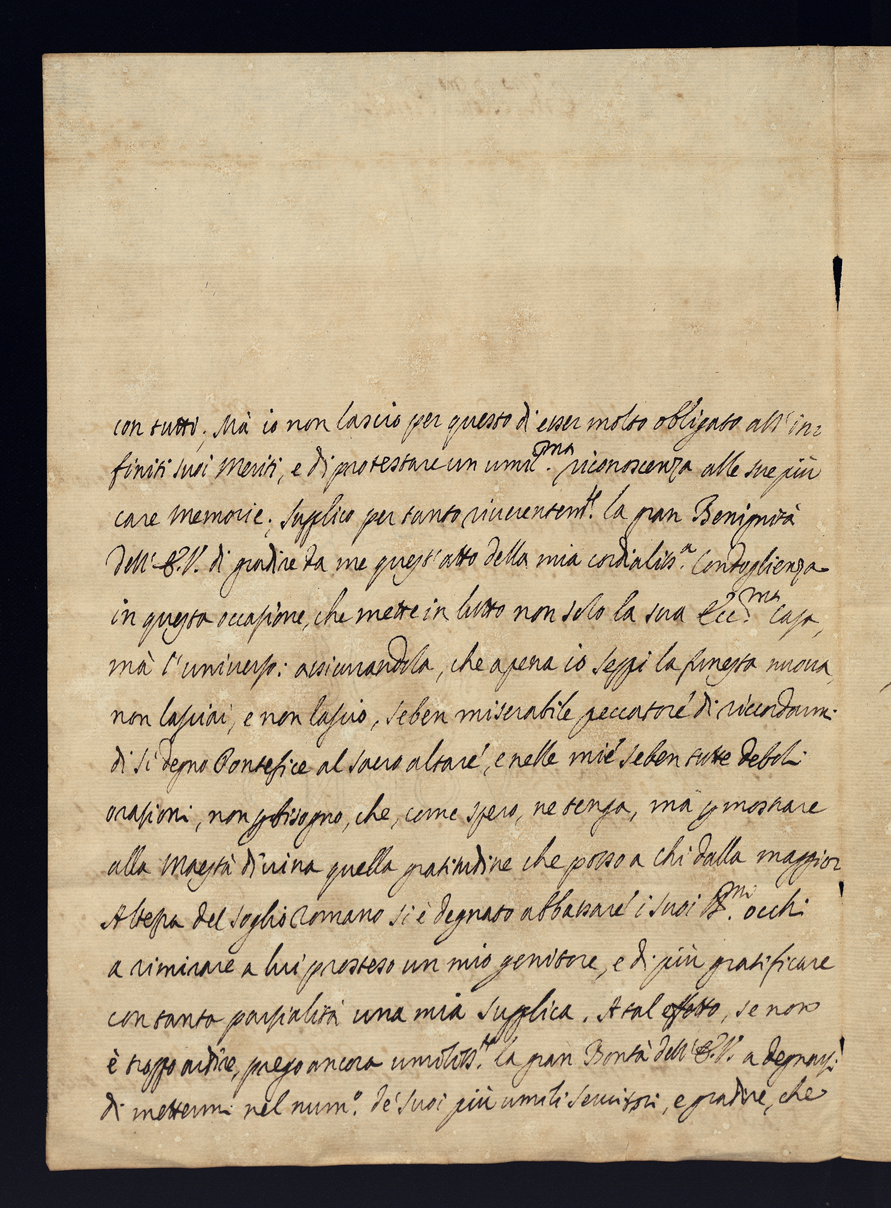 con tutti; Mà io non lascio per questo di esser molto obligato all'in=
finiti suoi Meriti, e di protestare un umil.ma riconoscenza alle sue più
care Memorie; Supplico per tanto riverentem.te la gran Benignità
dell'E.V. di gradire da me quest'atto della mia cordialiss.a Condoglienza
in questa occasione, che mette in lutto non solo la sua Ecc.ma Casa,
mà l'universo: assicurandola, che apena io seppi la funesta nuova,
non lasciai, e non lascio, seben miserabile peccatore di riccordarmi
di sì degno Pontefice al sacro altare, e nelle mie seben tutte deboli
orasioni, non p bisogno, che, come spero, ne tenga, mà p mostrare
alla Maestà divina quella gratitudine che posso a chi dalla maggior
Altessa del soglio Romano si è degnato abbassare i suoi S.mi occhi
a rimirare a lui prosteso un mio genitore, e di più gratificare
con tanta parsialità una mia supplica. A tal effetto, se non
è troppo ardire, prego ancora umiliss.te la gran Bontà dell'E.V. a degnarsi
di mettermi nel num.o de' suoi più umili servitori, e gradire, che